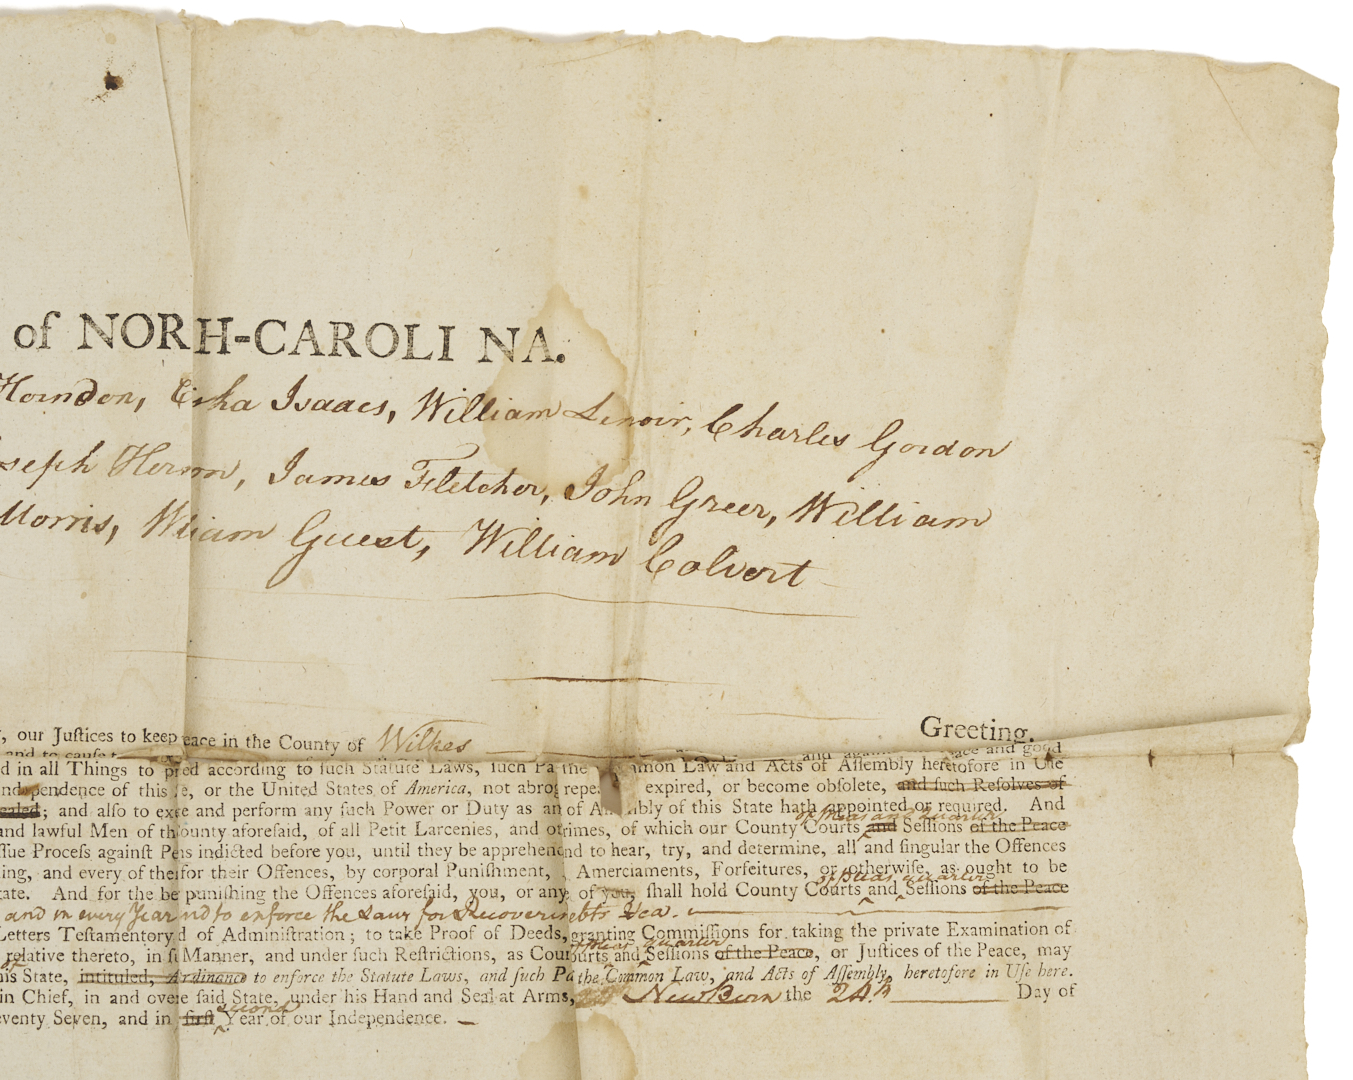 of NORH-CAROLI NA.
Horndon, Elisha Isaacs, William Lenoir, Charles Gordon
seph Herron, James Fletcher, John Greer, William
Morris, Wliam Guest, William Colvert
Greeting.
, our Juſtices to keep eace in the County of Wilkes
and to cauſe and good
d in all Things to p ed according to ſuch Statute Laws, ſuch Pa the mon Law and Acts of Aſſembly heretofore in Uſe
nd pendence of this e, or the United States of America, not abrog repea expired, or become obſolete, and ſuch Reſolves of
ealed; and alſo to exe and perform any ſuch Power or Duty as an of A bly of this State hath appointed or required. And
of Pleas and quarter
and lawful Men of th ounty aforeſaid, of all Petit Larcenies, and o rimes, of which our County Courts and Seſſions of the Peace
ſſue Proceſs againſt Pe s indicted before you, until they be apprehen nd to hear, try, and determine, all and ſingular the Offences
ing, and every of the for their Offences, by corporal Puniſhment, Amerciaments, Forfeitures, or otherwiſe, as ought to be
of pleas quarter
tate. And for the be puniſhing the Offences aforeſaid, you, or any of you, ſhall hold County Courts and Seſſions of the Peace
and in every Year nd to enforce the Laws for Recoverin ebts &ca.
Letters Teſtamentory d of Adminiſtration; to take Proof of Deeds, granting Commiſſions for taking the private Examination of
of Pleas quarter
relative thereto, in ſ Manner, and under ſuch Reſtrictions, as Cou ourts and Seſſions of the Peace, or Juſtices of the Peace, may
of
his State, intituled, Ardinance to enforce the Statute Laws, and ſuch Pa the Common Law, and Acts of Aſſembly, heretofore in Uſe here.
in Chief, in and ove e ſaid State, under his Hand and Seal at Arms, New Bern the 24th Day of
second
eventy Seven, and in firſt Year of our Independence.